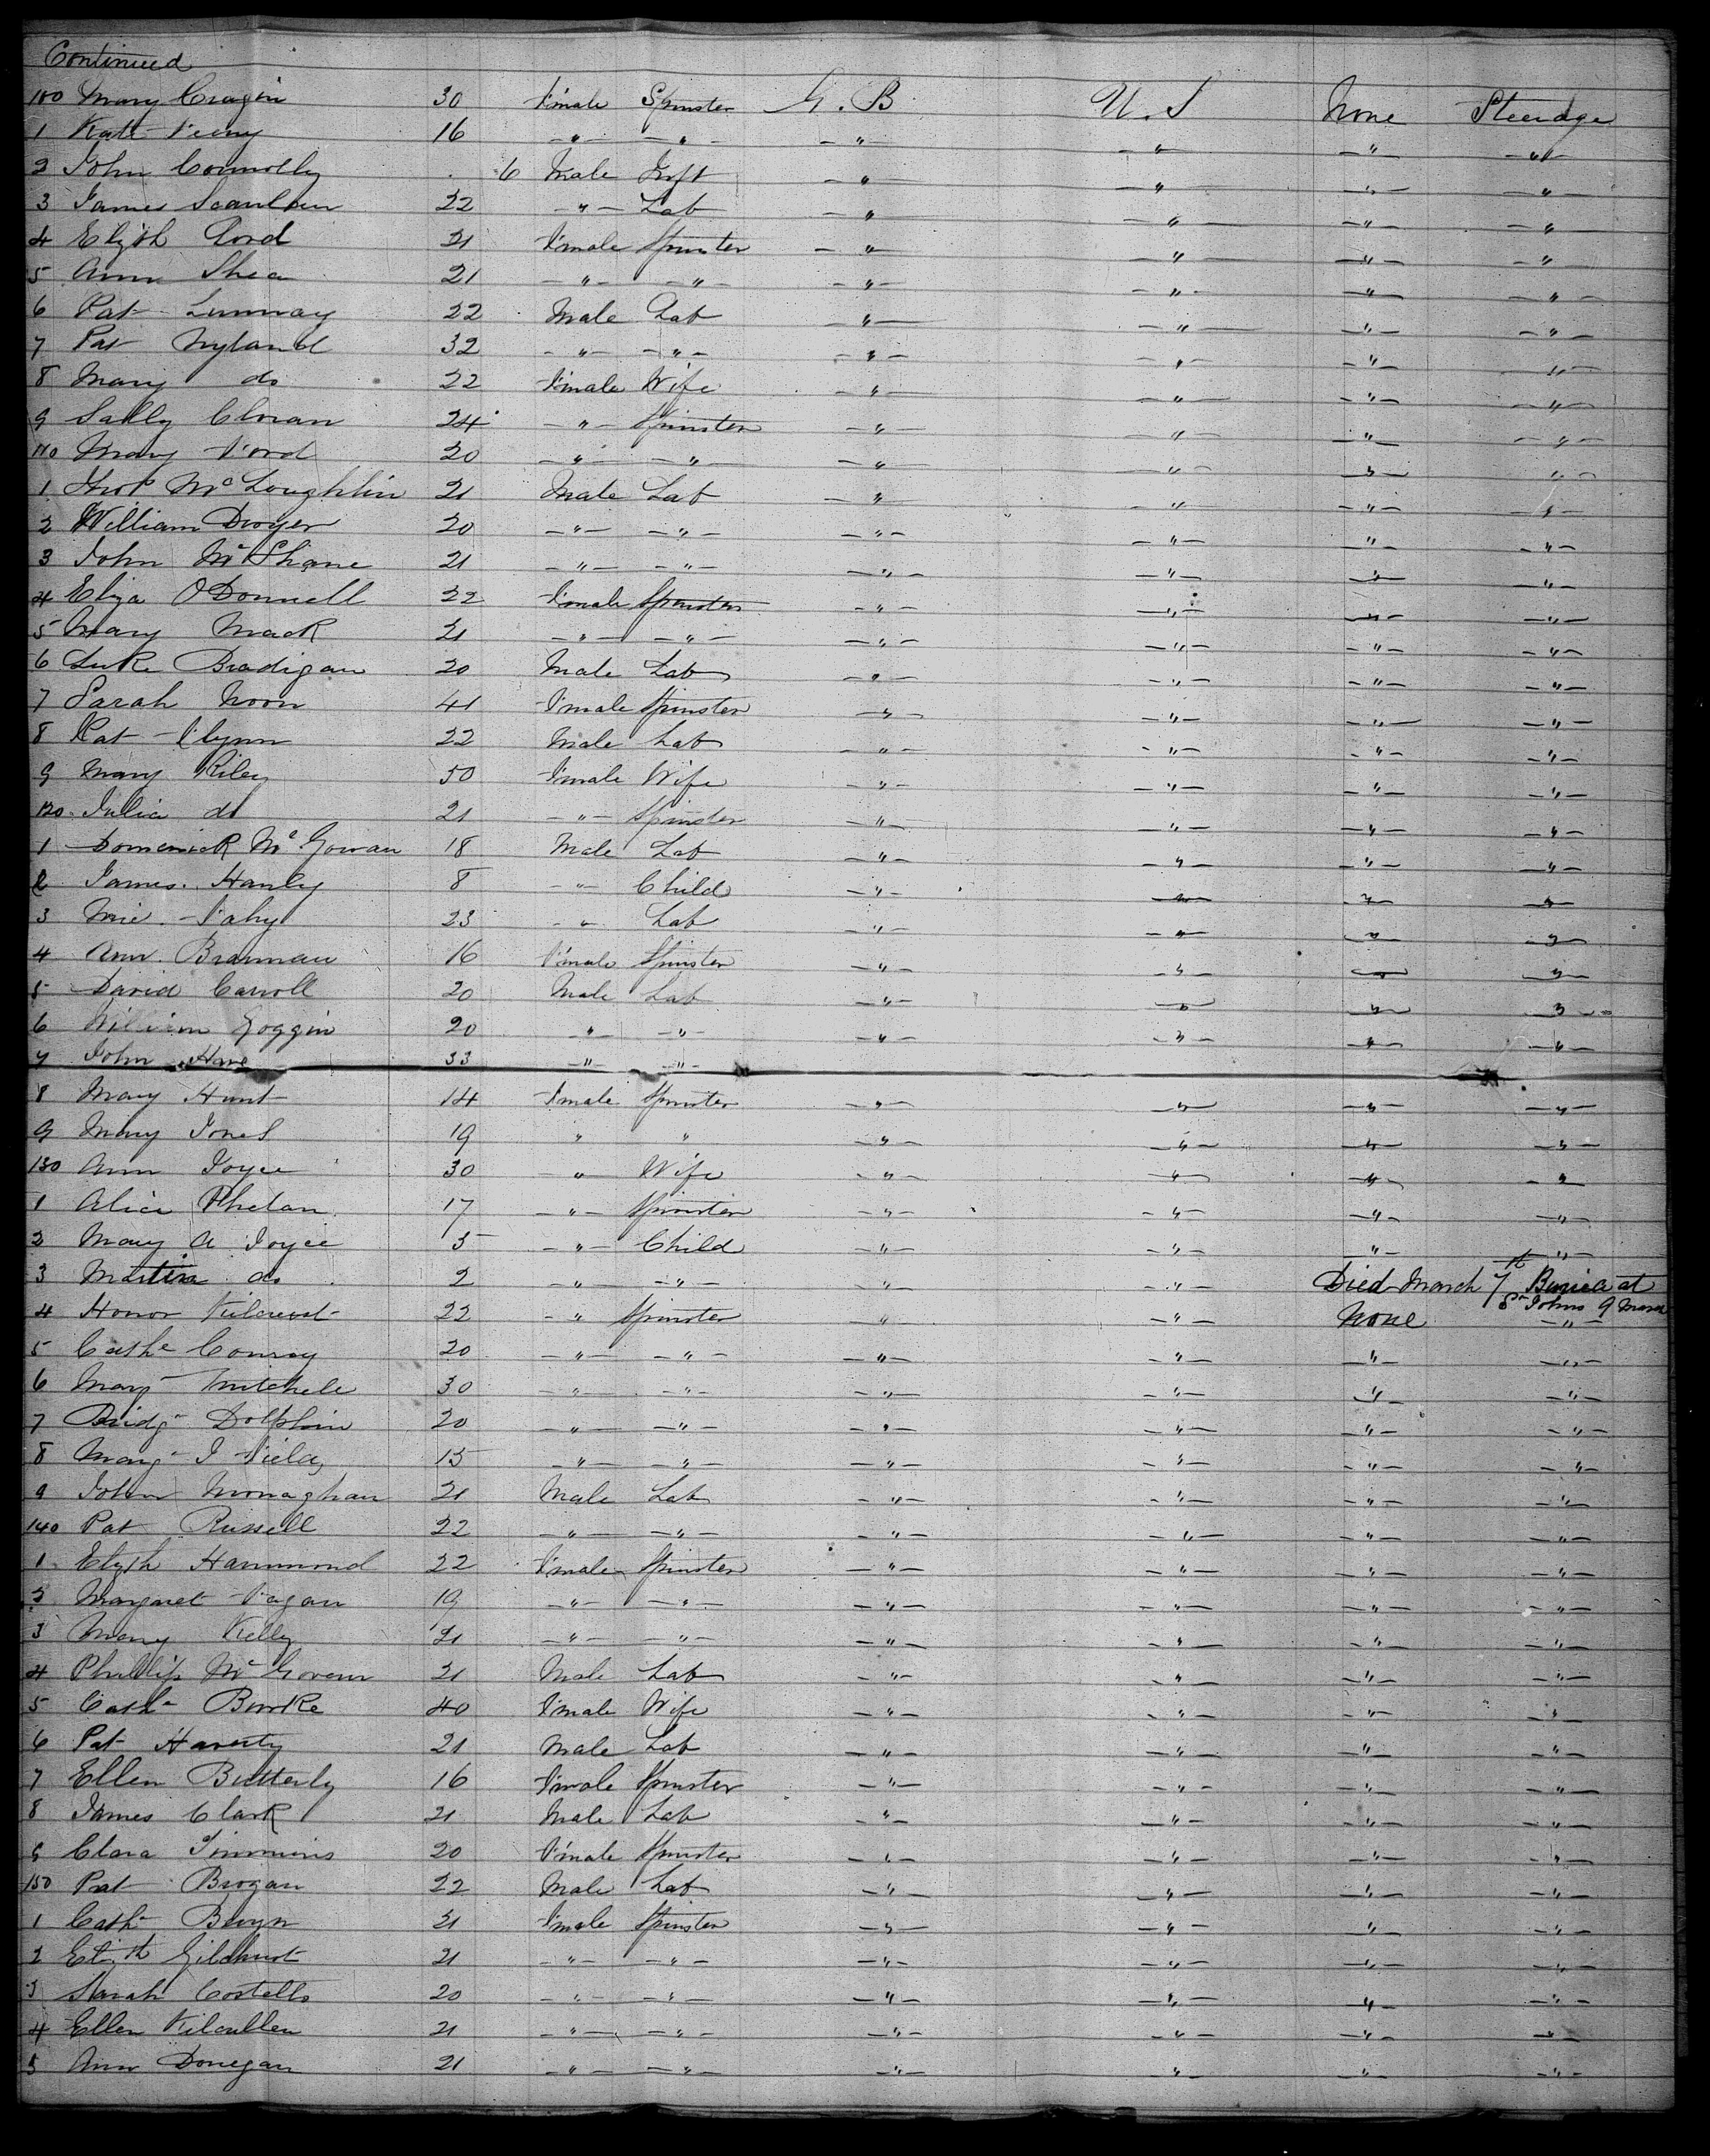 Continued
100 Mary Cragin 30 Female Spinster G. B U. S None Steerage
1 Kate 16 -"- -"- -"- -"- -"- -"-
2 John Connolly 6 Male Inft -"- -"- -"- -"-
3 James Scanlan 22 -"- Lab -"- -"- -"- -"-
4 Elizth Ford 21 Female Spinster -"- -"- -"- -"-
5 Ann Shea 21 -"- -"- -"- -"- -"- -"-
6 Pat 22 Male Lab -"- -"- -"- -"-
7 Pat Nyland 32 -"- -"- -"- -"- -"- -"-
8 Mary do 22 Female Wife -"- -"- -"- -"-
9 Sally Cloran 24 -"- Spinster -"- -"- -"- -"-
110 Mary Ford 20 -"- -"- -"- -"- -"- -"-
1 Thos McLoughlin 21 Male Lab -"- -"- -"- -"-
2 William Dwyer 20 -"- -"- -"- -"- -"- -"-
3 John McShane 21 -"- -"- -"- -"- -"- -"-
4 Eliza O'Donnell 22 Female Spinster -"- -"- -"- -"-
5 Mary Mack 21 -"- -"- -"- -"- -"- -"-
6 Luke Bradigan 20 Male Lab -"- -"- -"- -"-
7 Sarah Noon 41 Female Spinster -"- -"- -"- -"-
8 Pat Flynn 22 Male Lab -"- -"- -"- -"-
9 Mary Riley 50 Female Wife -"- -"- -"- -"-
120 Julia do 21 -"- Spinster -"- -"- -"- -"-
1 Domenick McGowan 18 Male Lab -"- -"- -"- -"-
2 James Hanly 8 -"- Child -"- -"- -"- -"-
3 Mic. Fahy 23 -"- Lab -"- -"- -"- -"-
4 Ann Brannan 16 Female Spinster -"- -"- -"- -"-
5 David Carroll 20 Male Lab -"- -"- -"- -"-
6 William Goggin 20 -"- -"- -"- -"- -"- -"-
7 John 33 -"- -"-
8 Mary Hunt 14 Female Spinster -"- -"- -"- -"-
9 Mary Jones 19 " " -"- -"- -"- -"-
130 Ann Joyce 30 -"- Wife -"- -"- -"- -"-
1 Alice Phelan 17 -"- Spinster -"- -"- -"- -"-
2 Mary A Joyce 5 -"- Child -"- -"- -"- -"-
3 Martin do 2 -"- -"- -"- -"- Died March 7th Buried at St Johns 9 March
4 Honor Kilcrest 22 -"- Spinster -"- -"- None -"-
5 Cathe Conroy 20 -"- -"- -"- -"- -"- -"-
6 Mary Mitchele 30 -"- -"- -"- -"- -"- -"-
7 Bridgt Dolphin 20 -"- -"- -"- -"- -"- -"-
8 15 -"- -"- -"- -"- -"- -"-
9 John Monaghan 21 Male Lab -"- -"- -"- -"-
140 Pat Russell 22 -"- -"- -"- -"- -"- -"-
1 Elizth Hammond 22 Female Spinster -"- -"- -"- -"-
2 Margaret Fagan 19 -"- -"- -"- -"- -"- -"-
3 Mary Kelly 21 -"- -"- -"- -"- -"- -"-
4 Phillip McGovern 21 Male Lab -"- -"- -"- -"-
5 Cath Burke 40 Female Wife -"- -"- -"- -"-
6 Pat Haverty 21 Male Lab -"- -"- -"- -"-
7 Ellen Butterly 16 Female Spinster -"- -"- -"- -"-
8 James Clark 21 Male Lab -"- -"- -"- -"-
9 Clara Timmins 20 Female Spinster -"- -"- -"- -"-
150 Pat Brogan 22 Male Lab -"- -"- -"- -"-
1 Cath 21 Female Spinster -"- -"- -"- -"-
2 Elizth Gilchrist 21 -"- -"- -"- -"- -"- -"-
3 Sarah Costello 20 -"- -"- -"- -"- -"- -"-
4 Ellen Kilcullen 21 -"- -"- -"- -"- -"- -"-
5 Ann Donegan 21 -"- -"- -"- -"- -"- -"-